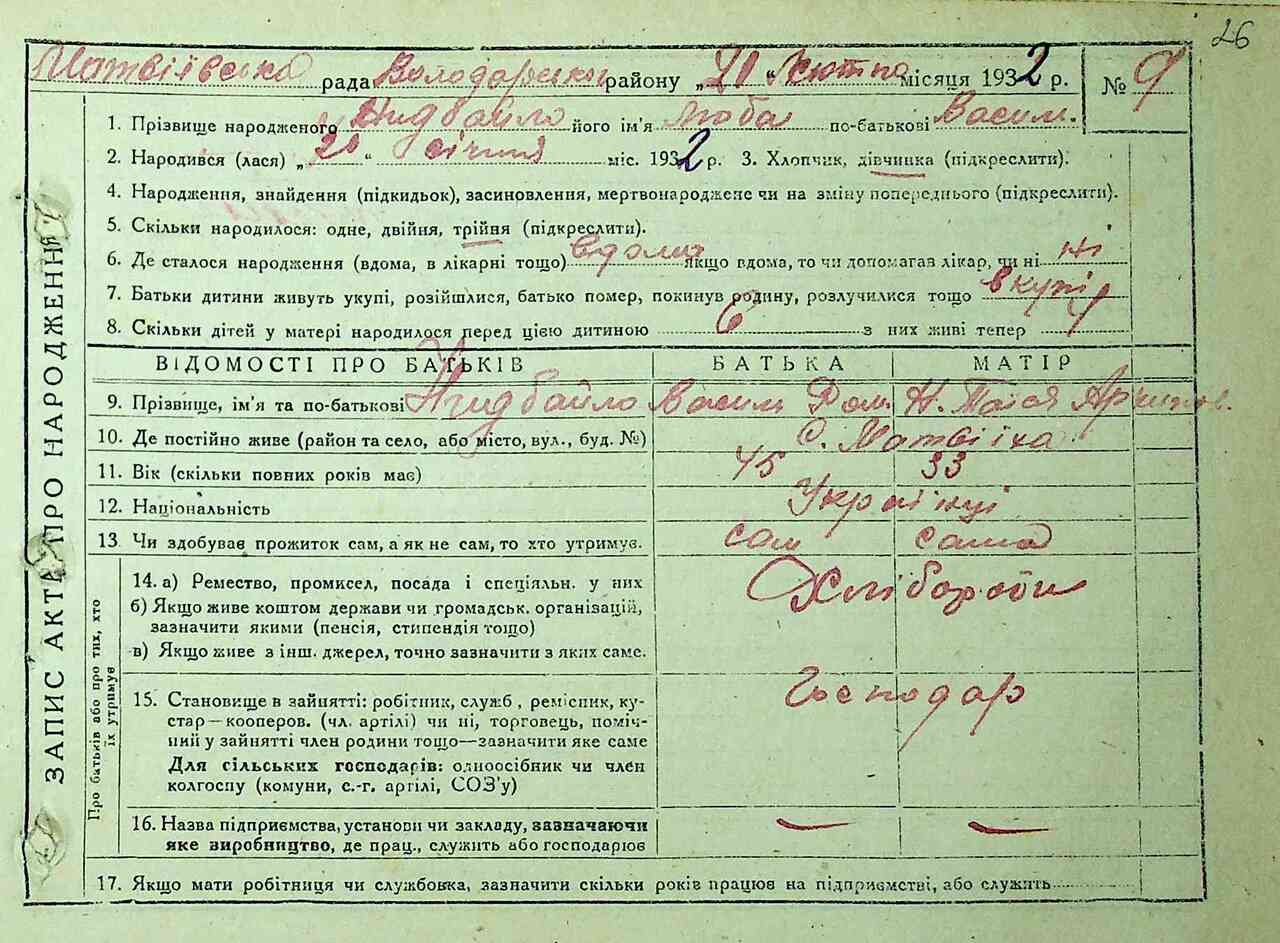 26
Матвіївська рада Володарського району „21“ Лютня місяця 1932 р. № 9
1. Прізвище народженого Нидбайло його ім'я Люба по-батькові Васил.
2. Народився (лася) „20“ січня міс. 1932 р. 3. Хлопчик, дівчинка (підкреслити).
4. Народження, знайдення (підкидьок), засиновлення, мертвонароджене чи на зміну попереднього (підкреслити).
5. Скільки народилося: одне, двійня, трійня (підкреслити).
6. Де сталося народження (вдома, в лікарні тощо) вдома якщо вдома, то чи допомагав лікар, чи ні ні
7. Батьки дитини живуть укупі, розійшлися, батько помер, покинув родину, розлучилися тощо вкупі
8. Скільки дітей у матері народилося перед цією дитиною 6 з них живі тепер 4
ВІДОМОСТІ ПРО БАТЬКІВ БАТЬКА МАТІР
9. Прізвище, ім'я та по-батькові Нидбайло Васил Ром. Н. Тася Архипов.
10. Де постійно живе (район та село, або місто, вул., буд. №) С. Матвіїха
11. Вік (скільки повних років має) 45 33
12. Національність Українці
13. Чи здобував прожиток сам, а як не сам, то хто утримує. сам сама
14. а) Ремество, промисел, посада і спеціяльн. у них Хлібороби
б) Якщо живе коштом держави чи громадськ. організацій,
зазначити якими (пенсія, стипендія тощо)
в) Якщо живе з інш. джерел, точно зазначити з яких саме.
15. Становище в зайнятті: робітник, служб., ремісник, ку- Господар
стар—кооперов. (чл. артілі) чи ні, торговець, поміч-
ний у зайнятті член родини тощо—зазначити яке саме
Для сільських господарів: одноосібник чи член
колгоспу (комуни, с.-г. артілі, СОЗ'у)
16. Назва підприємства, установи чи закладу, зазначаючи — —
яке виробництво, де прац., служить або господарює
17. Якщо мати робітниця чи службовка, зазначити скільки років працює на підприємстві, або служить
ЗАПИС АКТА ПРО НАРОДЖЕННЯ
Про батьків або про тих, хто
їх утримує